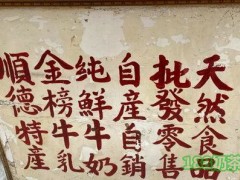 天然食品
批發零售
自産自銷
純鮮牛奶
金榜牛乳
順德特産